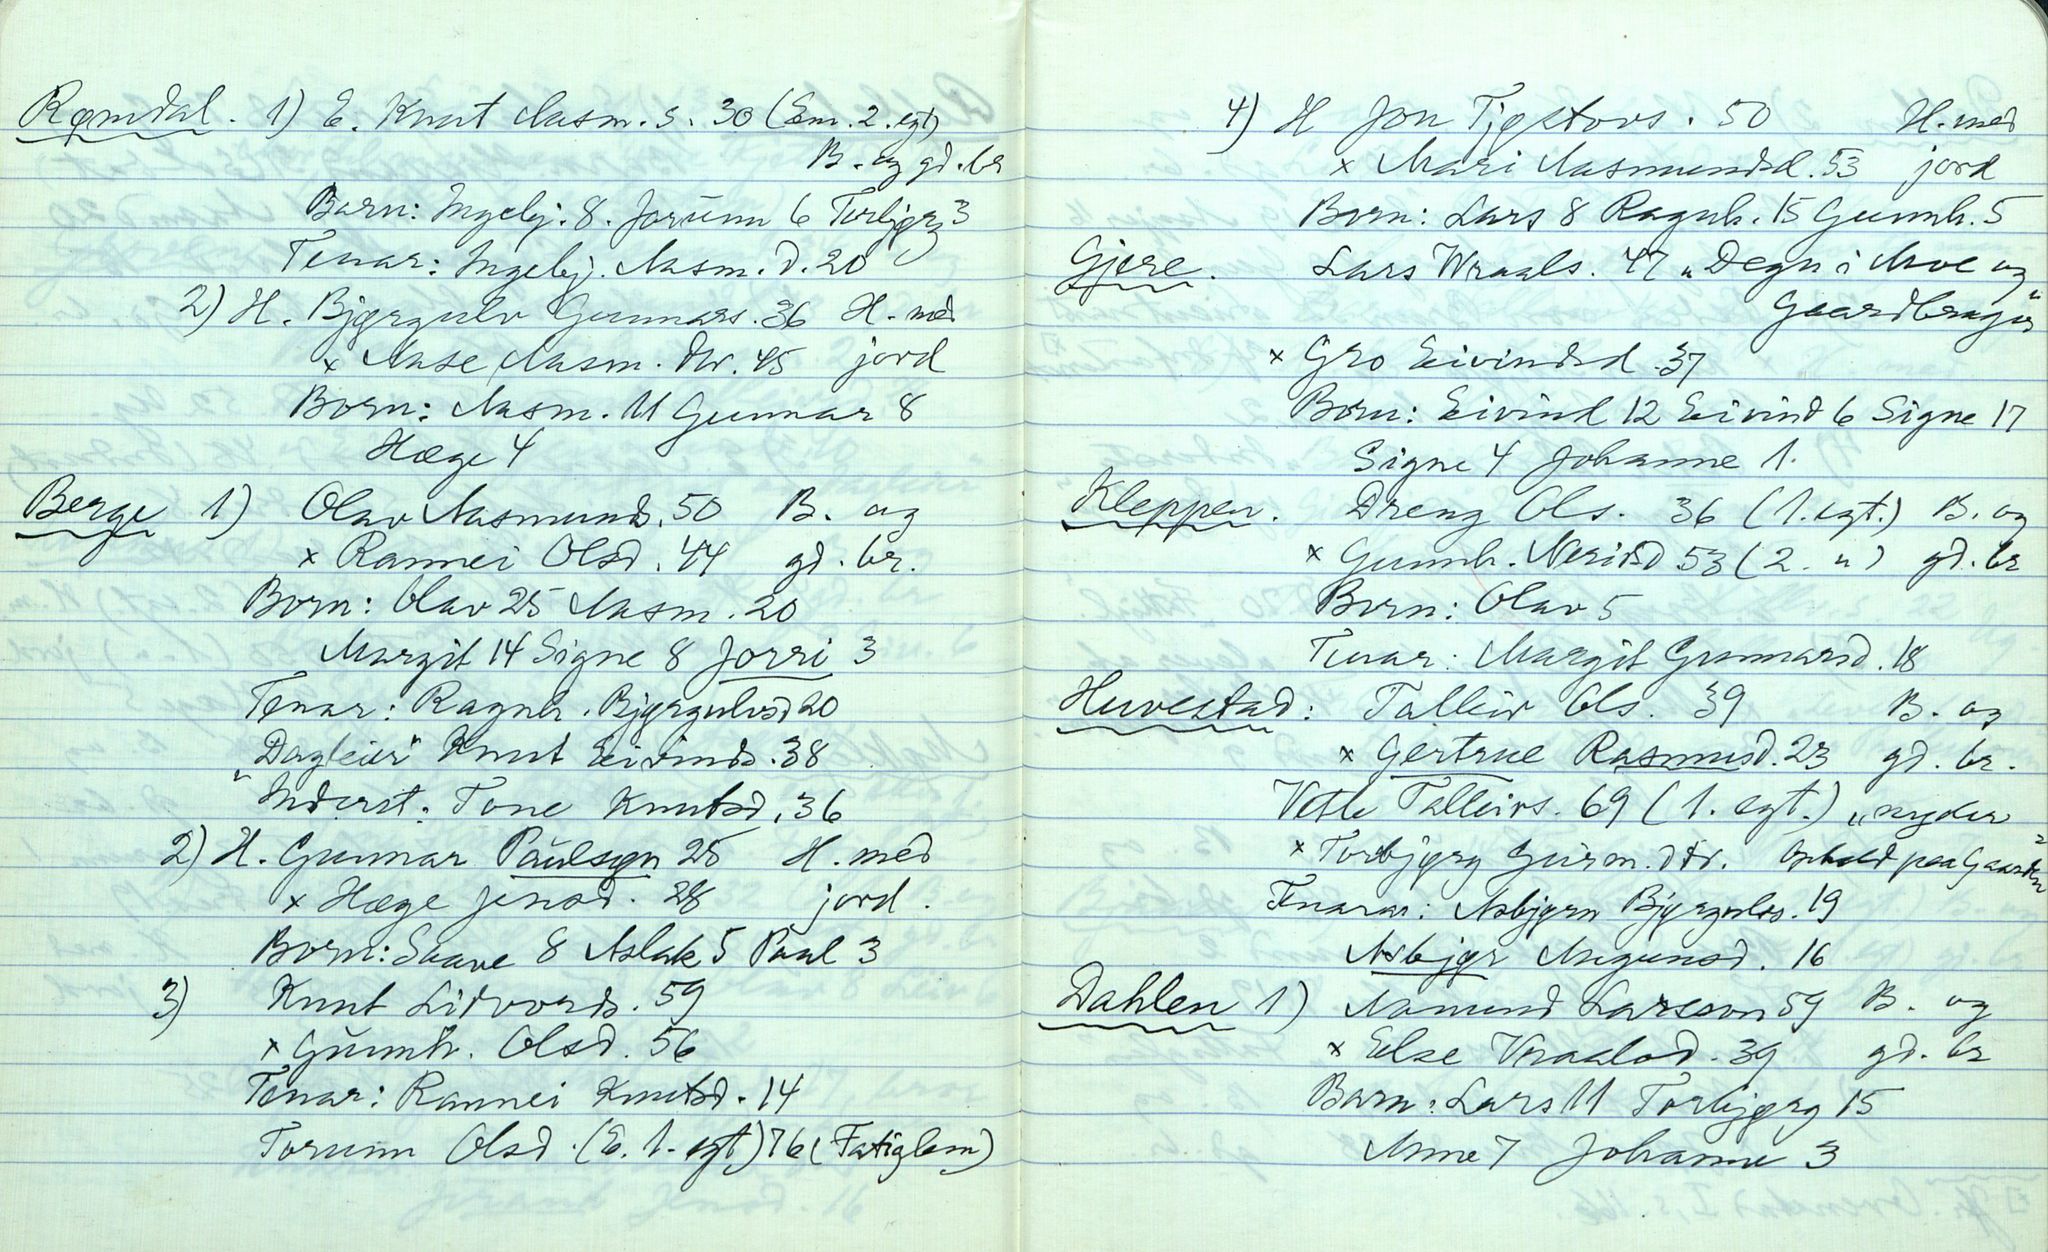 Rømdal. 1) E. Knut Aasm. s. 30 (Em. 2. egt)
B. og gd. br
Barn: Ingebj. 8. Jorunn 6 Torbjørg 3
Tenar: Ingebj. Aasm. d. 20
2) H. Bjørgulv Gunnars. 36 H. med
x Aase Aasm. dtr. 45 jord
Born: Aasm. 11 Gunnar 8
Hæge 4
Berge 1) Olav Aasmunds. 50 B. og
x Rannei Olsd. 44 gd. br.
Born: Olav 25 Aasm. 20
Margit 14 Signe 8 Jorri 3
Tenar: Ragnh. Bjørgulvsd 20
"Dagleier" Knut Eivinds. 38
Inderst: Tone Knutsd. 36
2) H. Gunnar Paulsøn 25 H. med
x Hæge Jensd. 28 jord.
Born: Saave 8 Aslak 5 Paal 3
3) Knut Lidvords. 59
x Gunnh. Olsd. 56
Tenar: Rannei Knutsd. 14
Torunn Olsd. (E. 1. egt) 76 (Fatiglem)
4) H Jon Tjøstovs. 50 H. med
x Mari Aasmundsd. 53 jord
Born: Lars 8 Ragnh. 15 Gunnh. 5
Gjere. Lars Wraals. 47 "Degn i Moe og
Gaardbruger"
x Gro Eivindsd. 37
Born: Eivind 12 Eivind 6 Signe 17
Signe 4 Johanne 1.
Kleppen. Dreng Ols. 36 (1. egt.) B. og
x Gunnh. Neridsd 53 (2. ") gd. br
Born: Olav 5
Tenar: Margit Gunnarsd. 18
Huvestad: Talleiv Ols. 39 B. og
x Gertrue Rasmusd. 23 gd. br.
Vetle Talleivs. 69 (1. egt.) "nyder
x Torbjørg Geirm. dtr. Ophold paa Gaarden"
Tenarar: Asbjørn Bjørgulvs. 19
Asbjør Augunsd. 16
Dahlen 1) Aamund Larsson 59 B. og
x Else Vraalsd. 39 gd. br
Barn: Lars 11 Torbjørg 15
Anne 7 Johanne 3